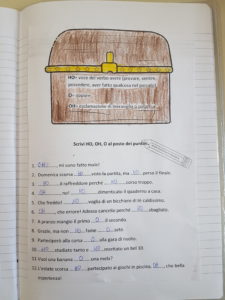 HO= voce del verbo avere (provare, sentire,
possedere, aver fatto qualcosa nel passato)
O= oppure
OH= esclamazione di meraviglia o
Scrivi HO, OH, O al posto dei puntini.
1. OH, mi sono fatto male!
2. Domenica scorsa HO visto la partita, ma HO perso il finale.
3. HO il raffreddore perché HO corso troppo.
4. OH no! HO dimenticato il quaderno a casa.
5. Che freddo! HO voglia di un bicchiere di tè caldissimo.
6. OH, che errore! Adesso cancello perché HO sbagliato.
7. A pranzo mangio il primo O il secondo.
8. Grazie, ma non HO fame O sete.
9. Parteciperò alla corsa O alla gara di nuoto.
10. HO studiato tanto e HO meritato un bel 10.
11. Vuoi una banana O una mela?
12. L'estate scorsa HO partecipato ai giochi in piscina. OH, che bella
esperienza!